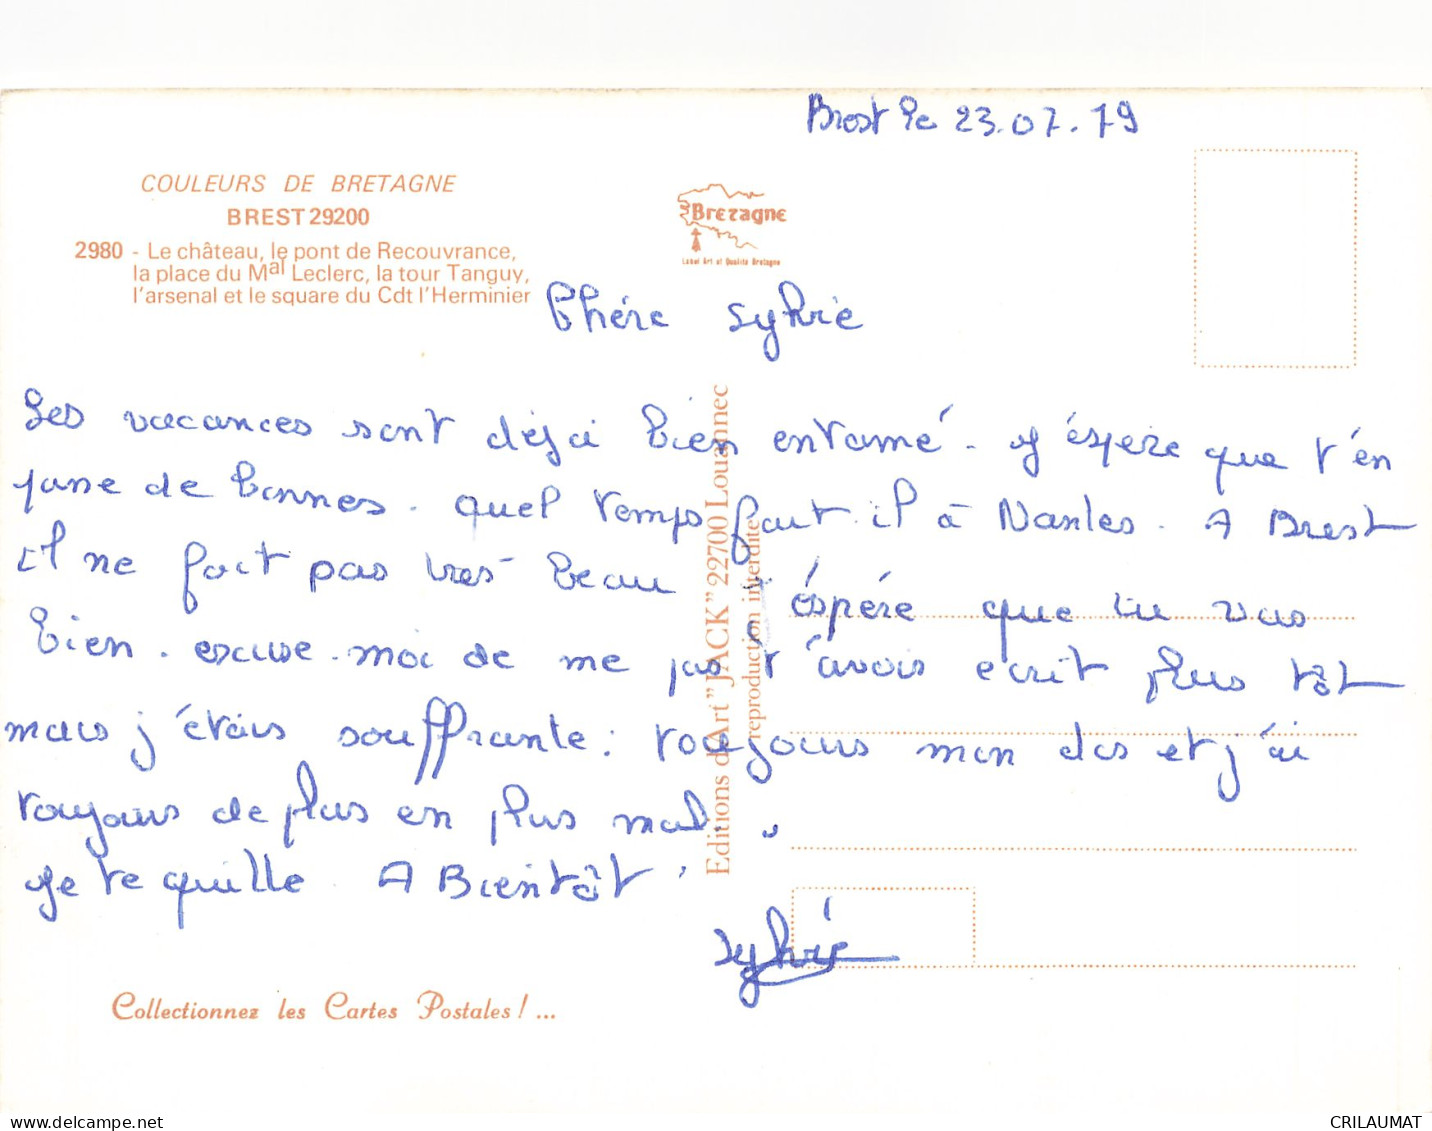 Brest le 23.07.79
COULEURS DE BRETAGNE
BREST 29200
2980 - Le château, le pont de Recouvrance,
la place du Mal Leclerc, la tour Tanguy,
l'arsenal et le square du Cdt l'Herminier
Brezagne
Label Art et Qualité Bretagne
Chére Sylvie
Les vacances sont déjà bien entamé. J'éspére que t'en
passe de bonnes. Quel temps fait il à Nantes. A Brest
il ne fait pas très beau. J'éspére que tu vas
bien. escuse-moi de me pas t'avois ecrit plus tôt
mais j'étais souffrante : toujours mon dos et j'ai
toujours de plus en plus mal.
Je te quitte A Bientôt
Sylvie
Editions d'Art "JACK" 22700 Louannec
reproduction interdite
Collectionnez les Cartes Postales ! ...
www.delcampe.net
CRILAUMAT